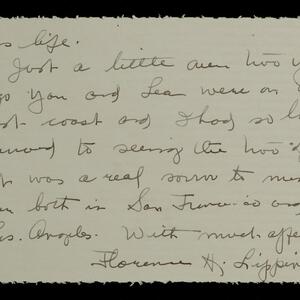 s life.
Just a little over two y
go you and Lea were on
st coast and I had so lo
rward to seeing the two
t was a real sorrow to miss
both in San Francisco and
Los Angeles. With much affe
Florence H. Lippin